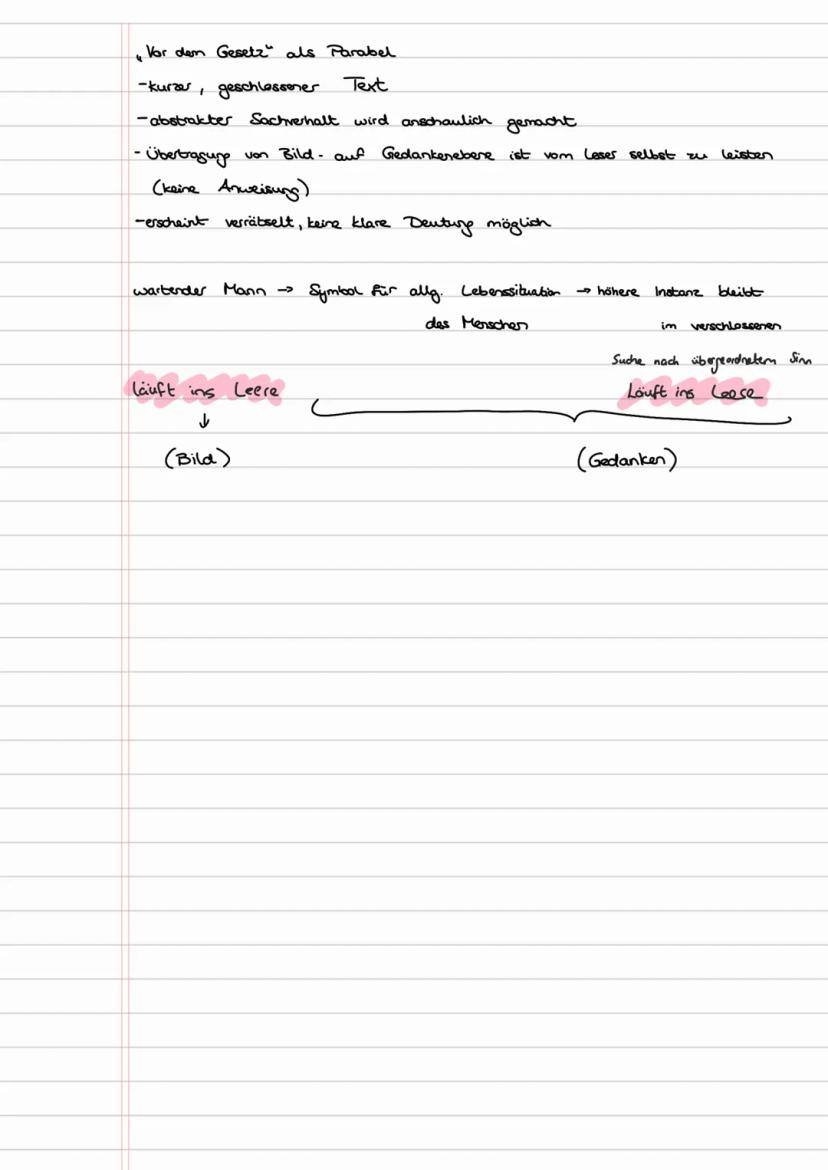 „Vor dem Gesetz" als Parabel
-kurzer, geschlossener Text
-abstrakter Sachverhalt wird anschaulich gemacht
- Übertragung von Bild- auf Gedankenebene ist vom Leser selbst zu leisten
(keine Anweisung)
-erscheint verrätselt, keine klare Deutung möglich
wartender Mann → Symbol für allg. Lebenssituation → höhere Instanz bleibt
des Menschen im verschlossenen
Suche nach übergeordnetem Sinn
läuft ins Leere Läuft ins Leere
↓
(Bild) (Gedanken)